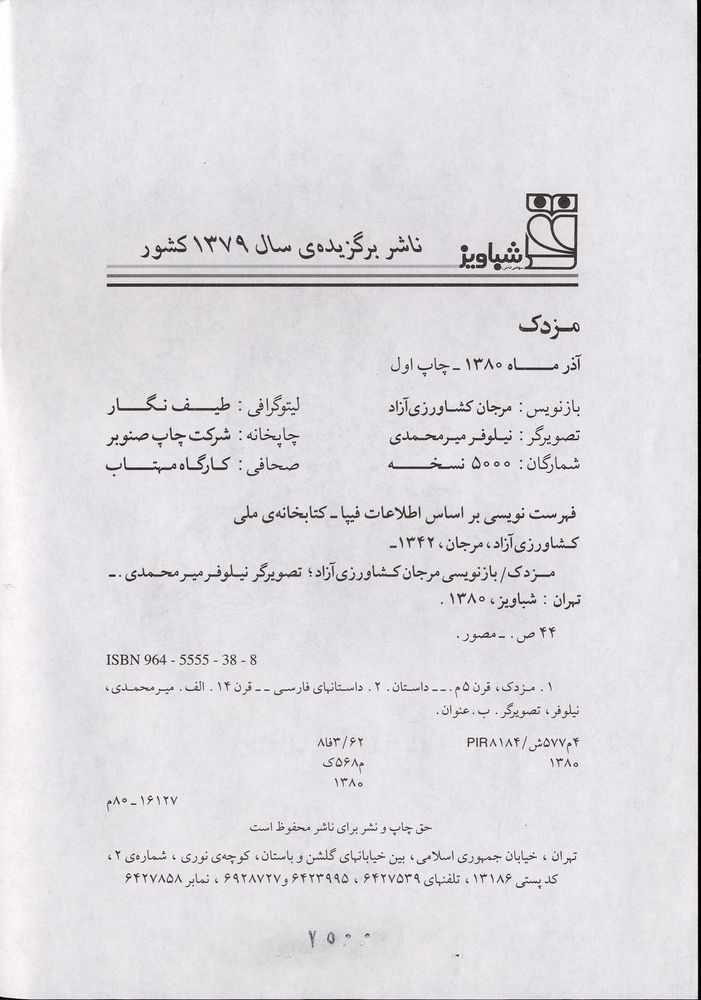 شباویز
ناشر برگزیده‌ی سال ۱۳۷۹ کشور
مـزدک
آذر مـــــاه ۱۳۸۰ ـ چاپ اول
بازنویس : مرجان کشـاورزی‌آزاد
لیتوگرافی : طیـــف نـگـــار
تصویرگر : نیـلوفـر میـرمحـمدی
چاپخانه : شرکت چاپ صنوبر
شمارگان : ۵۰۰۰ نسـخـــــه
صحافی : کـارگـاه مـهتـــاب
فهرست نویسی بر اساس اطلاعات فیپا ـ کتابخانه‌ی ملی
کـشاورزی‌آزاد، مرجان، ۱۳۴۲ـ
مـــزدک/ بازنویسی مرجان کـشـاورزی‌آزاد؛ تصویرگر نیـلوفـر میـر محـمدی .ـ
تهران : شباویز، ۱۳۸۰ .
۴۴ ص. ـ مصور.
ISBN 964 - 5555 - 38 - 8
۱. مـزدک، قرن ۵م.ــ داستان. ۲. داستانهای فارسـی ــ قرن ۱۴. الف. میـرمحمـدی،
نیلوفر، تصویرگر . ب. عنوان.
۴م۵۷۷ش/ PIR۸۱۸۴
۸فا۳/۶۲
۱۳۸۰
م۵۶۸ک
۱۳۸۰
۱۶۱۲۷ ـ ۸۰م
حق چاپ و نشر برای ناشر محفوظ است
تهران ، خیابان جمهوری اسلامی، بین خیابانهای گلشن و باستان، کوچه‌ی نوری ، شماره‌ی ۲،
کد پستی ۱۳۱۸۶ ، تلفنهای ۶۴۲۷۵۳۹ ، ۶۴۲۳۹۹۵ و۶۹۲۸۷۲۷ ، نمابر ۶۴۲۷۸۵۸
۷۵۰۰